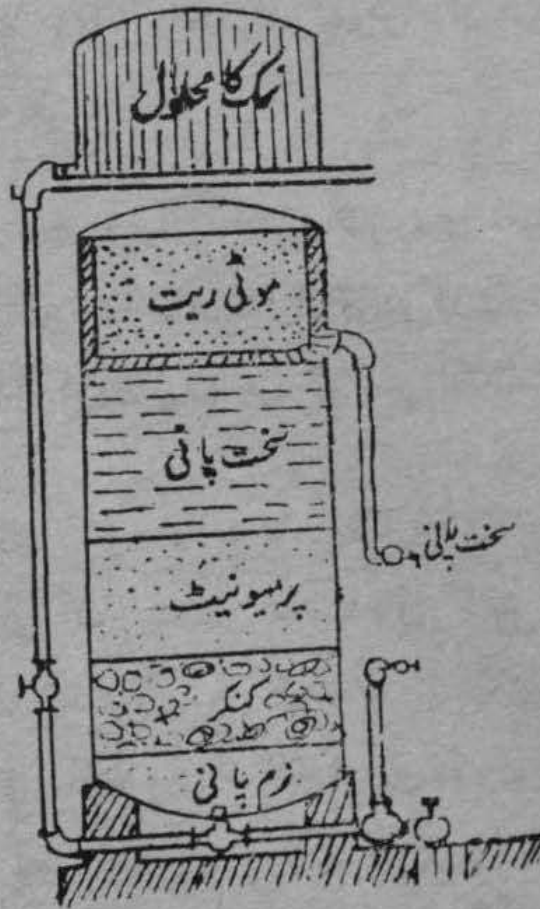 نمک کا محلول
موٹی ریت
سخت پانی
سخت پانی
پرمیونیٹ
کنکر
نرم پانی